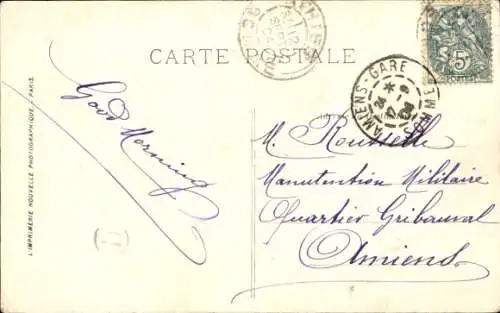 CARTE POSTALE
AMIENS-GARE
SOMME
5
POSTES
Good
Morning
M. Rousselle
Manutention Militaire
Quartier Gribauval
Amiens
L'IMPRIMERIE NOUVELLE PHOTOGRAPHIQUE - PARIS